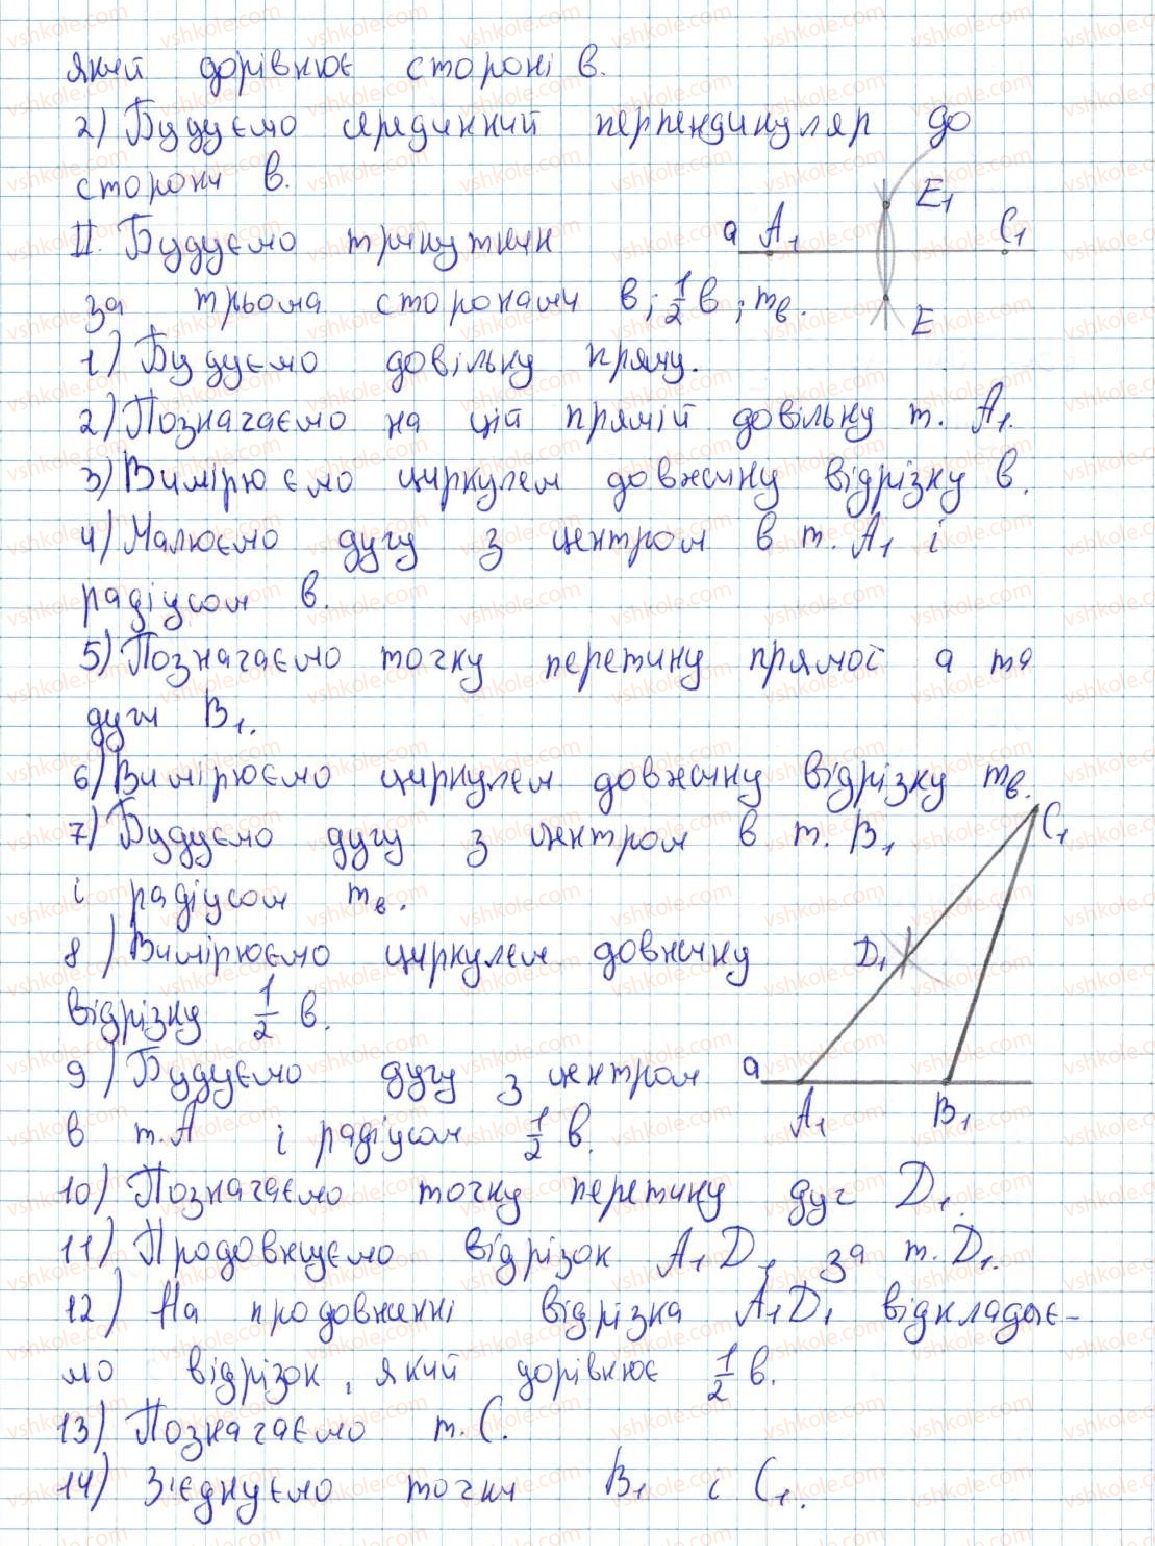 який дорівнює стороні в.
2) Будуємо серединний перпендикуляр до
сторони в.
E1
II. Будуємо трикутник
a A1 C1
за трьома сторонами в; 1/2 в; mв.
E
1) Будуємо довільну пряму.
2) Позначаємо на цій прямій довільну т. A1.
3) Вимірюємо циркулем довжину відрізку в.
4) Малюємо дугу з центром в т. A1 і
радіусом в.
5) Позначаємо точку перетину прямої a та
дуги B1.
6) Вимірюємо циркулем довжину відрізку mв.
C1
7) Будуємо дугу з центром в т. B1
і радіусом mв.
8) Вимірюємо циркулем довжину
D1
відрізку 1/2 в.
9) Будуємо дугу з центром
a
в т. A і радіусом 1/2 в.
A1 B1
10) Позначаємо точку перетину дуг D1.
11) Продовжуємо відрізок A1D1 за т. D1.
12) На продовженні відрізка A1D1 відкладає-
мо відрізок, який дорівнює 1/2 в.
13) Позначаємо т. C.
14) З'єднуємо точки B1 і C1.
vshkole.com